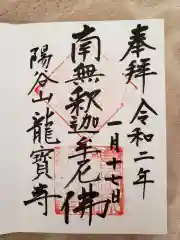 奉拝
令和二年
一月十七日
南無釈迦牟尼佛
陽谷山龍寶寺